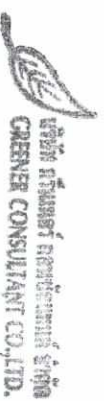 บริษัท กรีนเนอร์ คอนซัลแตนท์ จำกัด
GREENER CONSULTANT CO.,LTD.